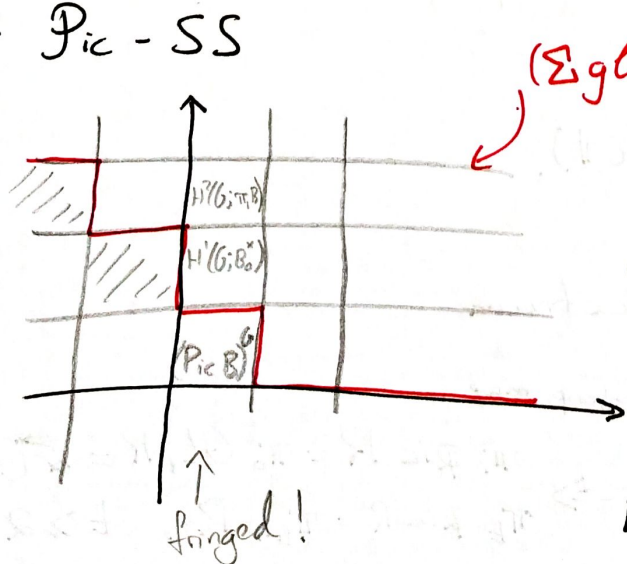 Pic - SS
(Σ gl
H²(G; π₁B)
H¹(G; B₀ˣ)
(Pic B)ᴳ
fringed!